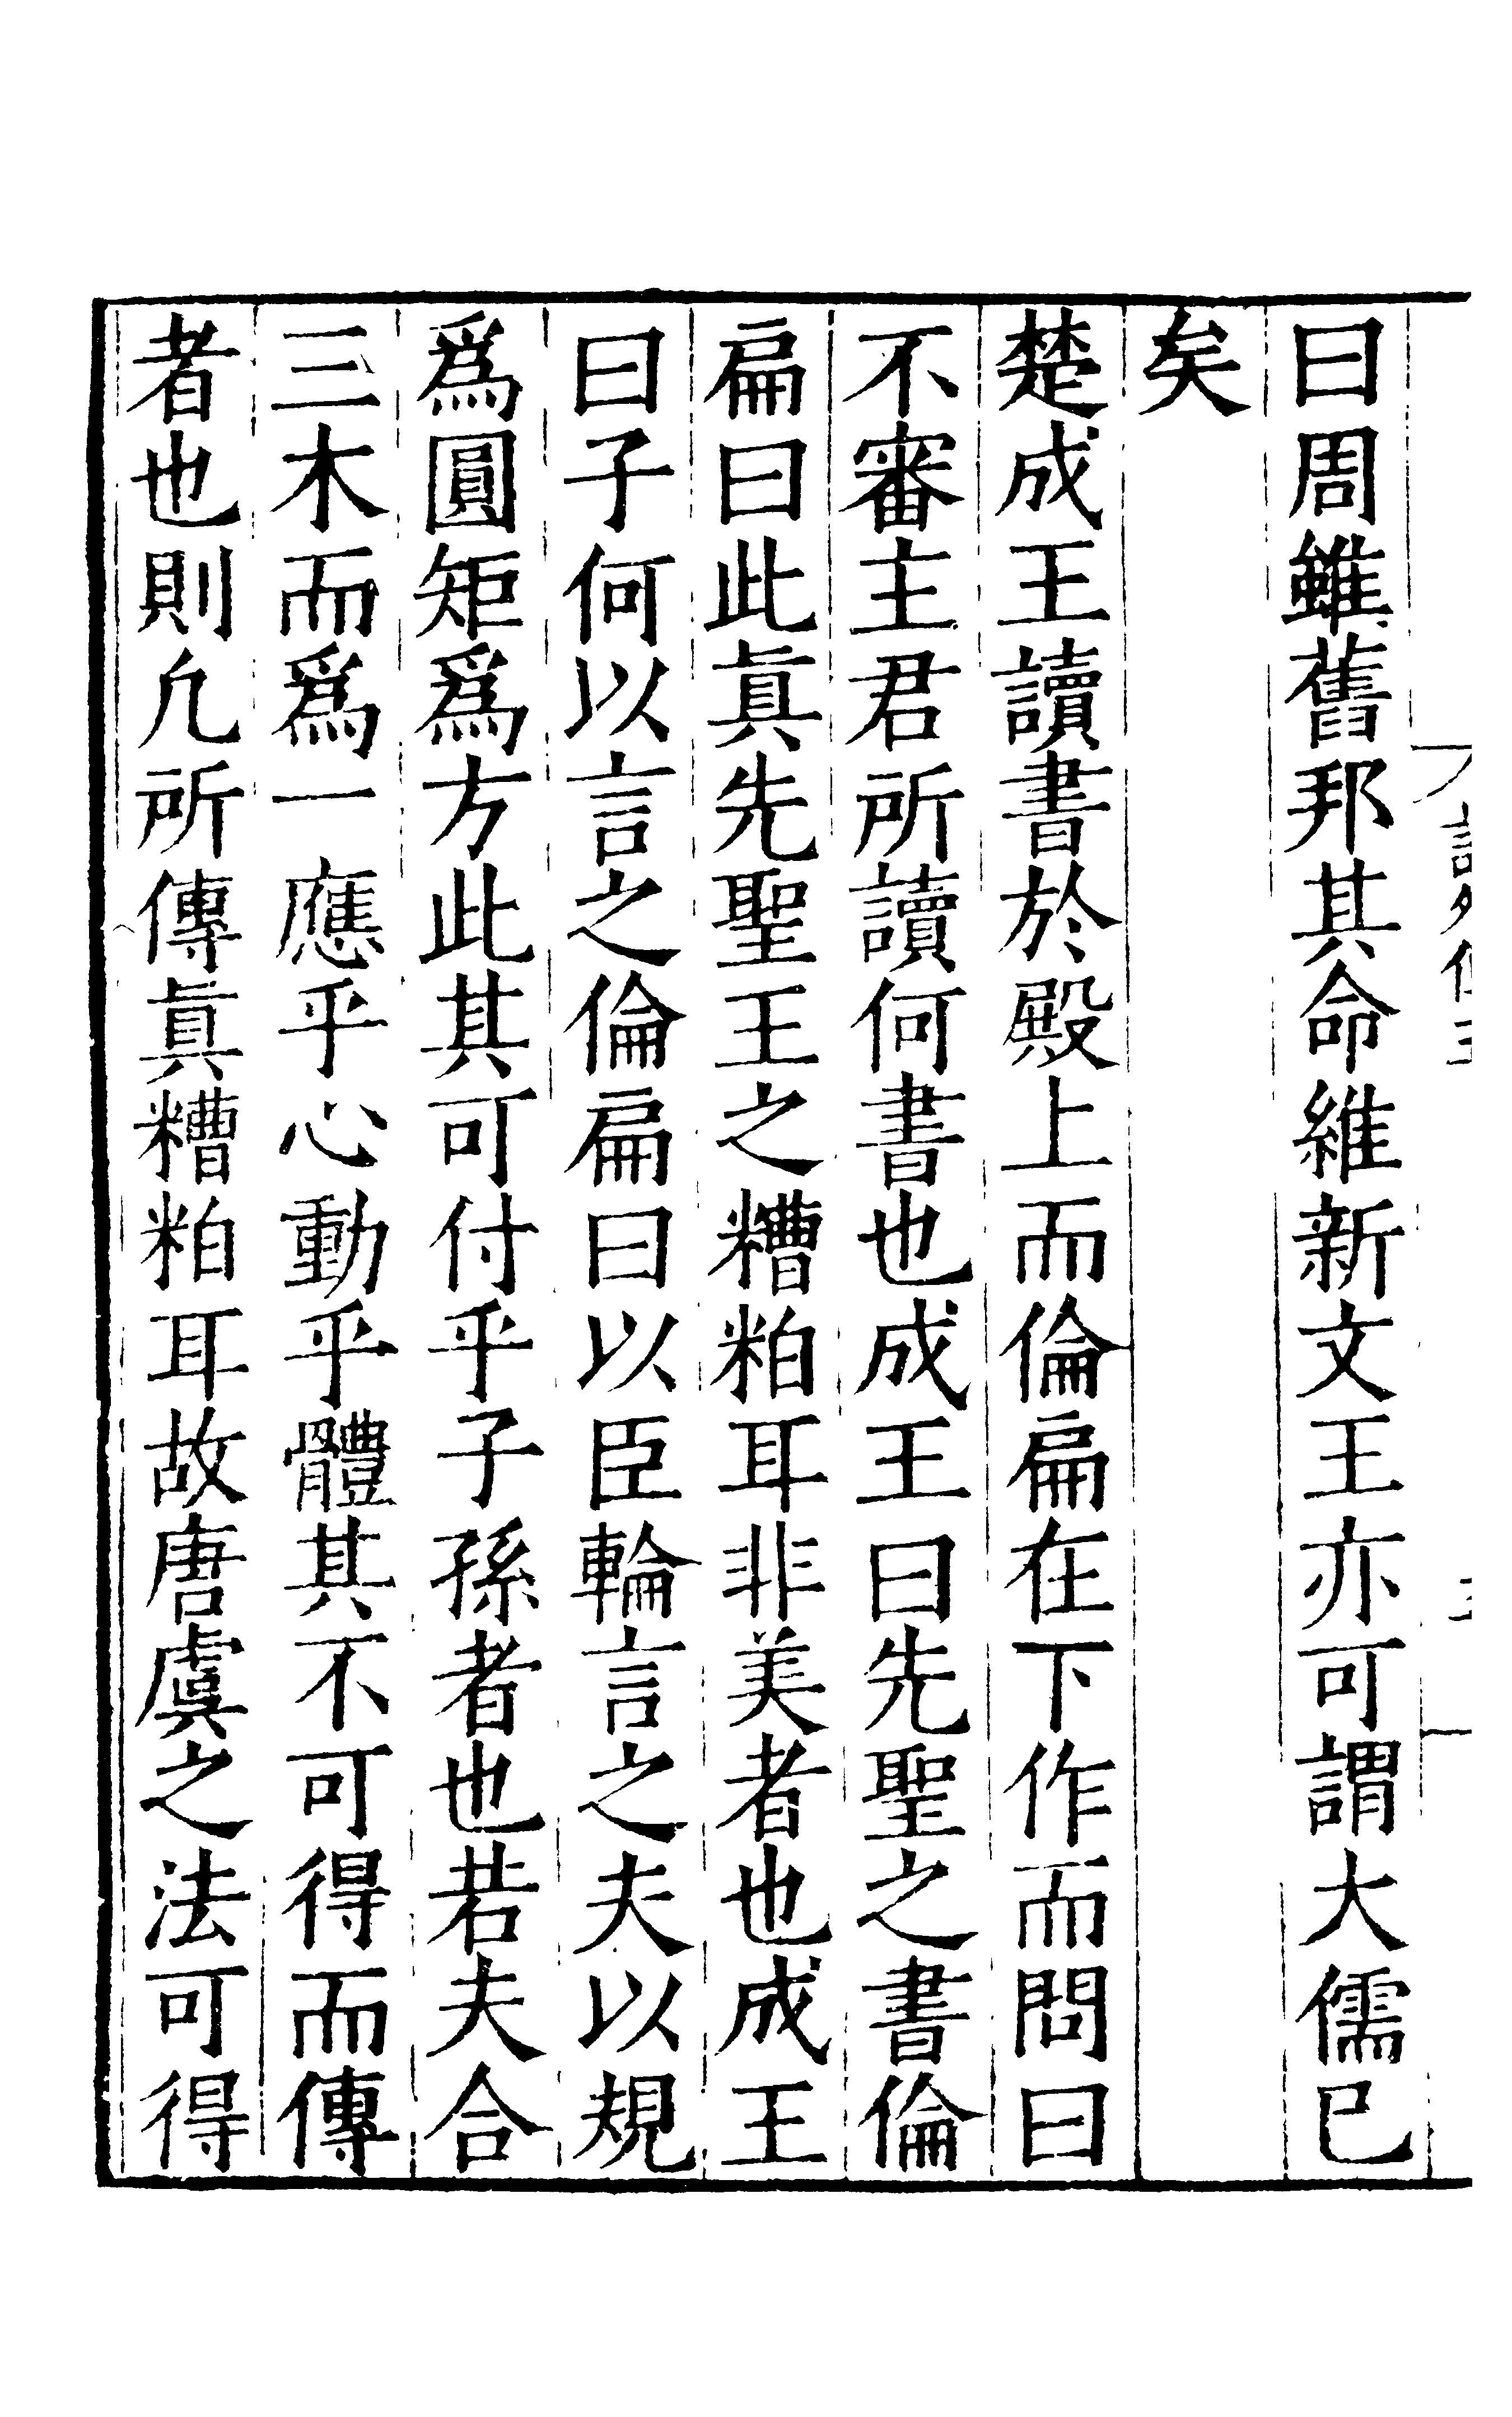 曰周雖舊邦其命維新文王亦可謂大儒已
矣
楚成王讀書於殿上而倫扁在下作而問曰
不審主君所讀何書也成王曰先聖之書倫
扁曰此眞先聖王之糟粕耳非美者也成王
曰子何以言之倫扁曰以臣輪言之夫以規
爲圓矩爲方此其可付乎子孫者也若夫合
三木而爲一應乎心動乎體其不可得而傳
者也則凢所傳眞糟粕耳故唐虞之法可得